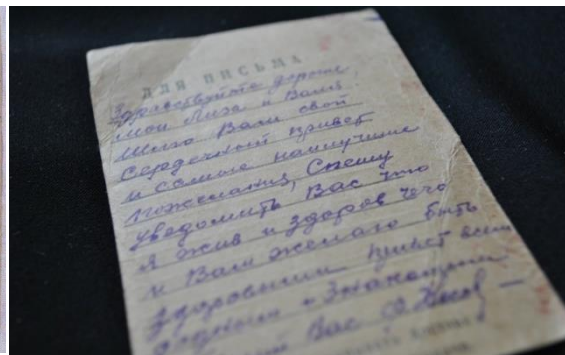 ДЛЯ ПИСЬМА
Здравствуйте дорогие
мои Лиза и Валя.
Шлю Вам свой
сердечный привет
и самые наилучшие
пожелания, Спешу
уведомить Вас что
я жив и здоров чего
и Вам желаю быть
здоровыми привет всем
родным и знакомым
Вас